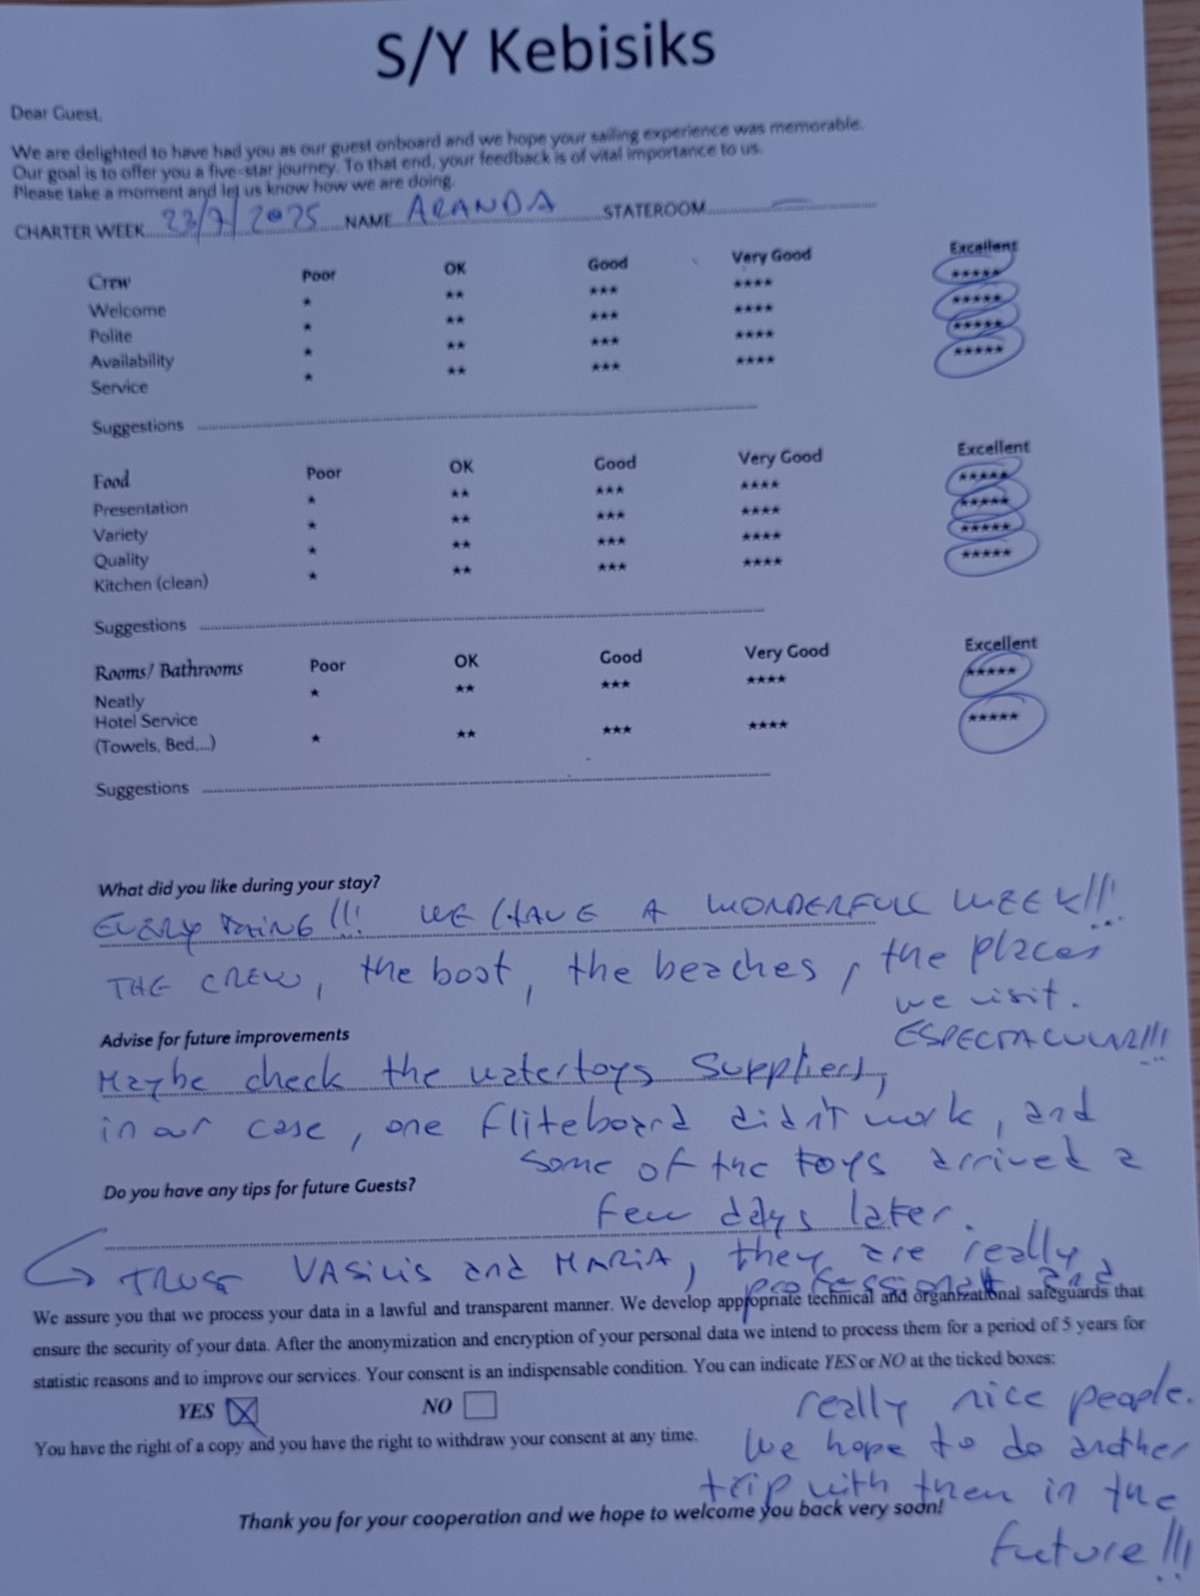 S/Y Kebisiks
Dear Guest,
We are delighted to have had you as our guest onboard and we hope your sailing experience was memorable.
Our goal is to offer you a five-star journey. To that end, your feedback is of vital importance to us.
Please take a moment and let us know how we are doing.
CHARTER WEEK 23/7/2025 NAME ARANDA STATEROOM —
Crew Poor OK Good Very Good Excellent
Welcome * ** *** **** *****
Polite * ** *** **** *****
Availability * ** *** **** *****
Service * ** *** **** *****
Suggestions
Food Poor OK Good Very Good Excellent
Presentation * ** *** **** *****
Variety * ** *** **** *****
Quality * ** *** **** *****
Kitchen (clean) * ** *** **** *****
Suggestions
Rooms/ Bathrooms Poor OK Good Very Good Excellent
Neatly * ** *** **** *****
Hotel Service
(Towels, Bed,...) * ** *** **** *****
Suggestions
What did you like during your stay?
EVERYTHING!!! WE HAVE A WONDERFULL WEEK!!!
THE CREW, the boat, the beaches, the places
we visit.
ESPECTACULAR!!!
Advise for future improvements
Maybe check the watertoys suppliers,
in our case, one fliteboard didn't work, and
some of the toys arrived a
few days later.
Do you have any tips for future Guests?
TRUST VASILIS and MARIA, they are really
professional and
We assure you that we process your data in a lawful and transparent manner. We develop appropriate technical and organizational safeguards that
ensure the security of your data. After the anonymization and encryption of your personal data we intend to process them for a period of 5 years for
statistic reasons and to improve our services. Your consent is an indispensable condition. You can indicate YES or NO at the ticked boxes:
YES ☒ NO ☐
You have the right of a copy and you have the right to withdraw your consent at any time.
really nice people.
We hope to do another
trip with them in the
future!!!
Thank you for your cooperation and we hope to welcome you back very soon!